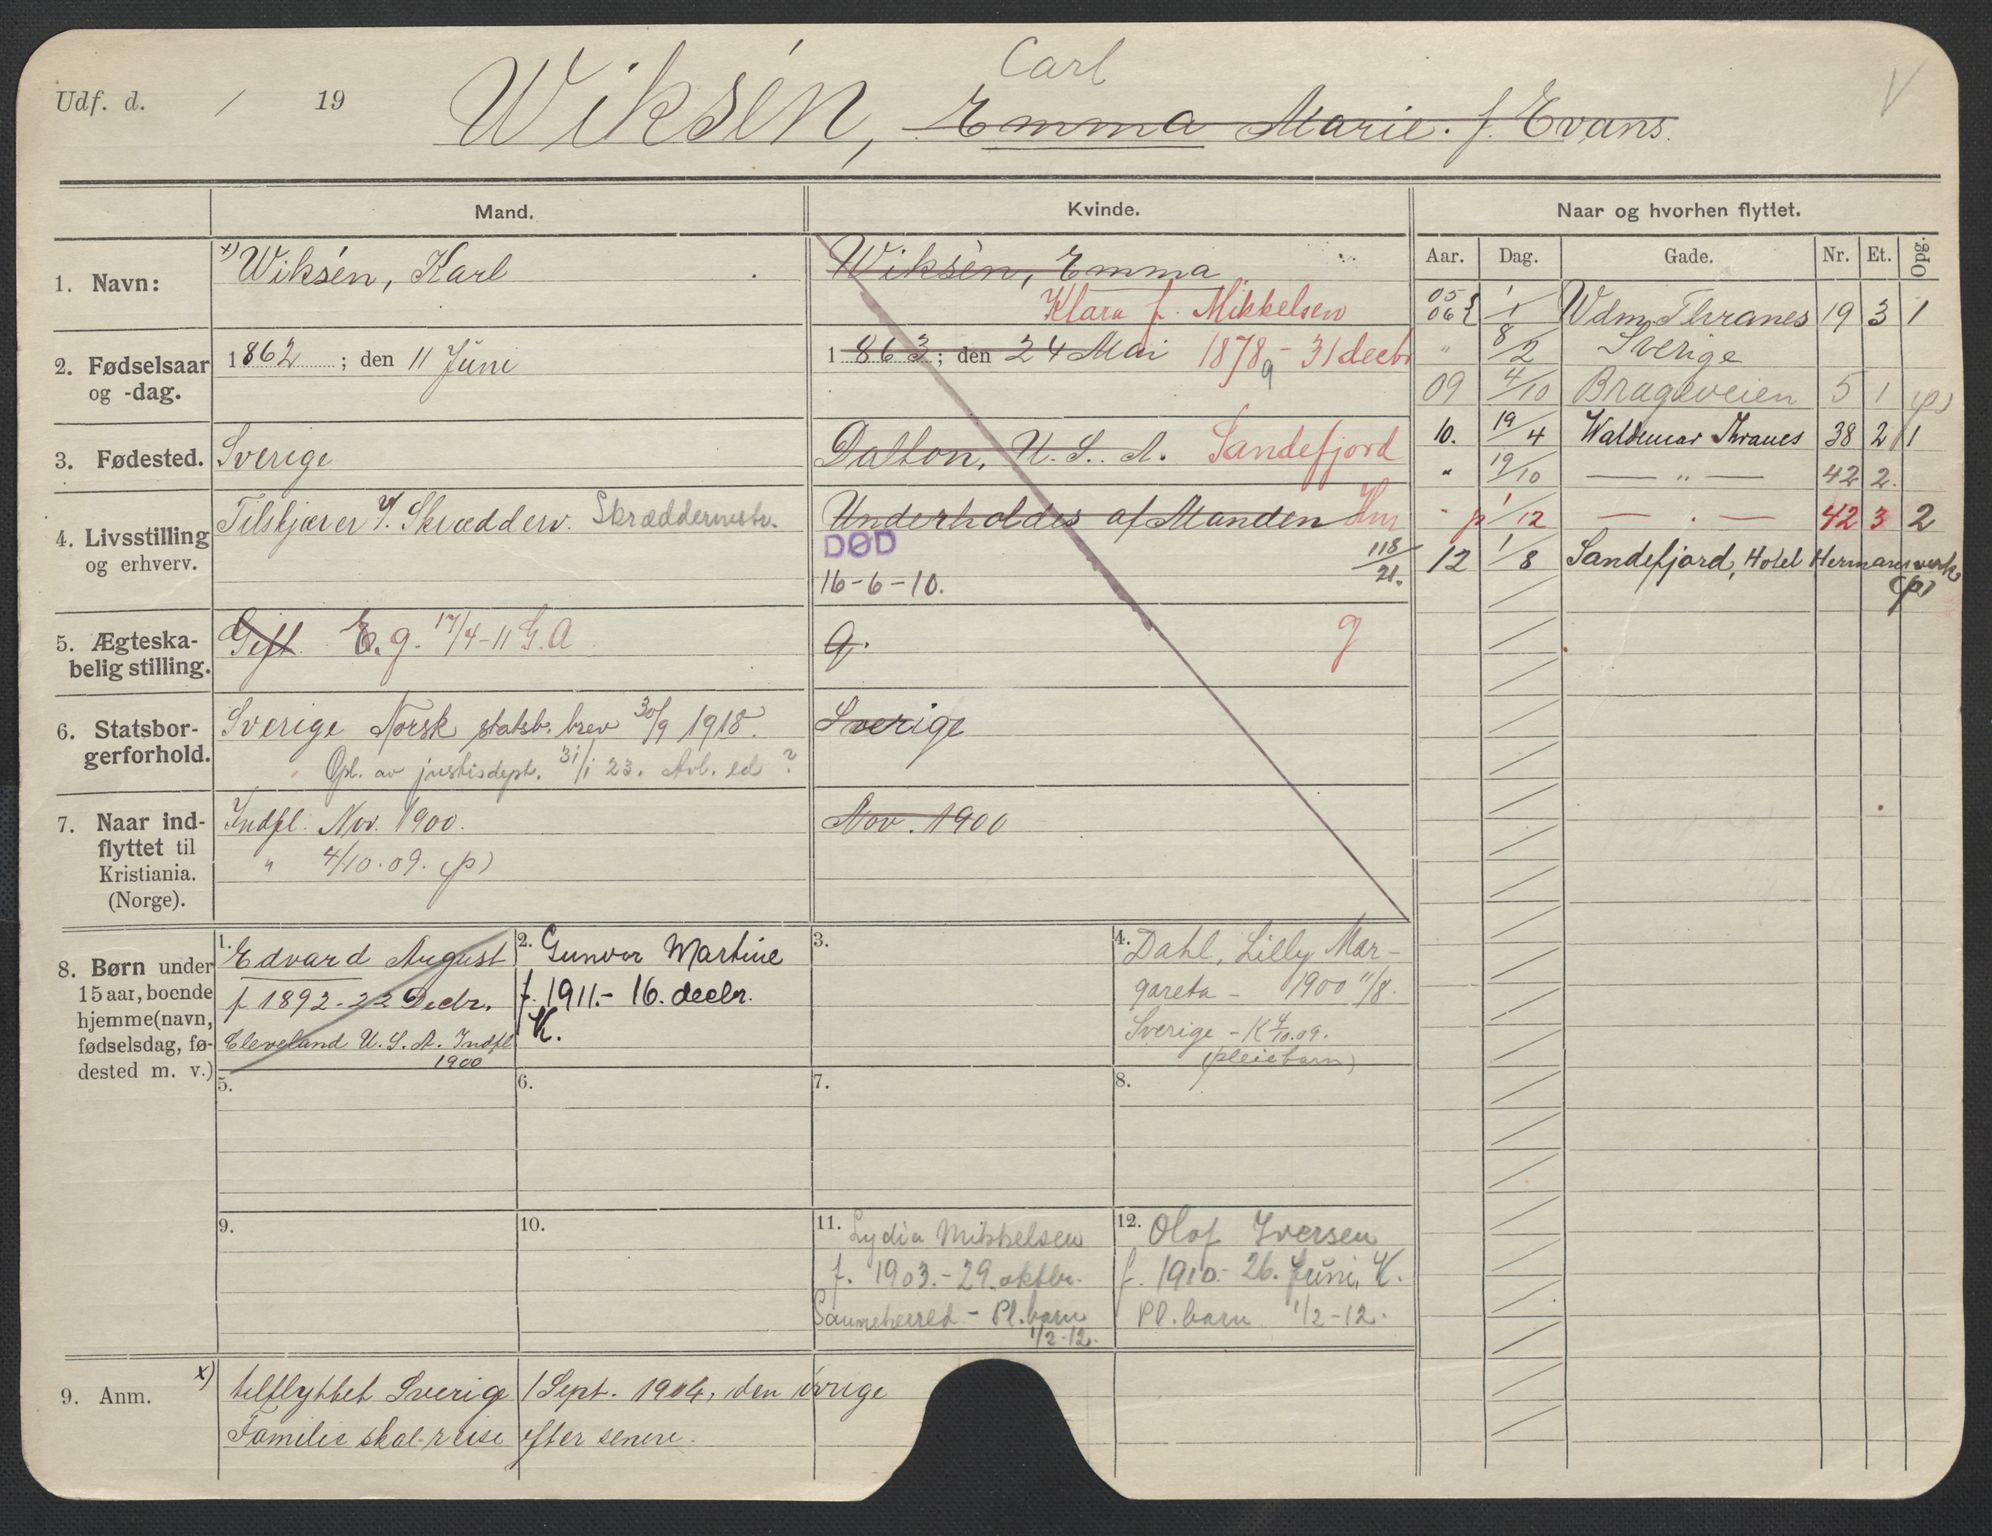 Udf. d. / 19
Carl
Wiksén, Emma Marie. f. Evans.
V
Mand.
Kvinde.
Naar og hvorhen flyttet.
Aar. Dag. Gade. Nr. Et. Opg.
1. Navn:
x) Wiksén, Karl
Wiksén, Emma
Klara f. Mikkelsen
2. Fødselsaar
og -dag.
1862 ; den 11 Juni
1863 ; den 24 Mai 1878 - 31 decbr
9
3. Fødested.
Sverige
Dalton, U. S. A. Sandefjord
4. Livsstilling
og erhverv.
Tilskjærer v/. Skrædderv. Skræddermstr.
Underholdes af Manden Hm
DØD
16-6-10.
118/21.
5. Ægteska-
belig stilling.
Gift E. g. 17/4-11 G. A
g. g
6. Statsbor-
gerforhold.
Sverige Norsk statsb. brev 30/9 1918.
Opl. av justisdept. 31/1 23. Avl. ed ?
Sverige
7. Naar ind-
flyttet til
Kristiania.
(Norge).
Indfl. Nov. 1900.
" 4/10.09. (p)
Nov. 1900
05
06 { 1/1 Wdm. Thranes 19 3 1
" 8/2 Sverige
09 4/10 Brageveien 5 1 (p)
10. 19/4 Waldemar Thranes 38 2 1
" 19/10 — " — 42 2.
- p 1/12 — . — 42 3 2
12 1/8 Sandefjord, Hotel Hermansverk
(p)
8. Børn under
15 aar, boende
hjemme (navn,
fødselsdag, fø-
dested m. v.)
1. Edvard August
f 1892-22 Decbr.
Cleveland U. S. A. Indfl
1900
2. Gunvor Martine
f. 1911.- 16. decbr.
K.
3.
4. Dahl, Lilly Mar-
gareta - 1900 11/8.
Sverige - K 4/10.09.
(pleiebarn)
5.
6.
7.
8.
9.
10.
11. Lydia Mikkelsen
f. 1903.- 29. oktbr.
Sanneherred - Pl. barn
1/2-12.
12. Olof Iversen
f. 1910.- 26. Juni, K.
Pl. barn 1/2-12.
9. Anm.
x) tilflyttet Sverige 1 Sept. 1904, den øvrige
Familie skal reise efter senere.